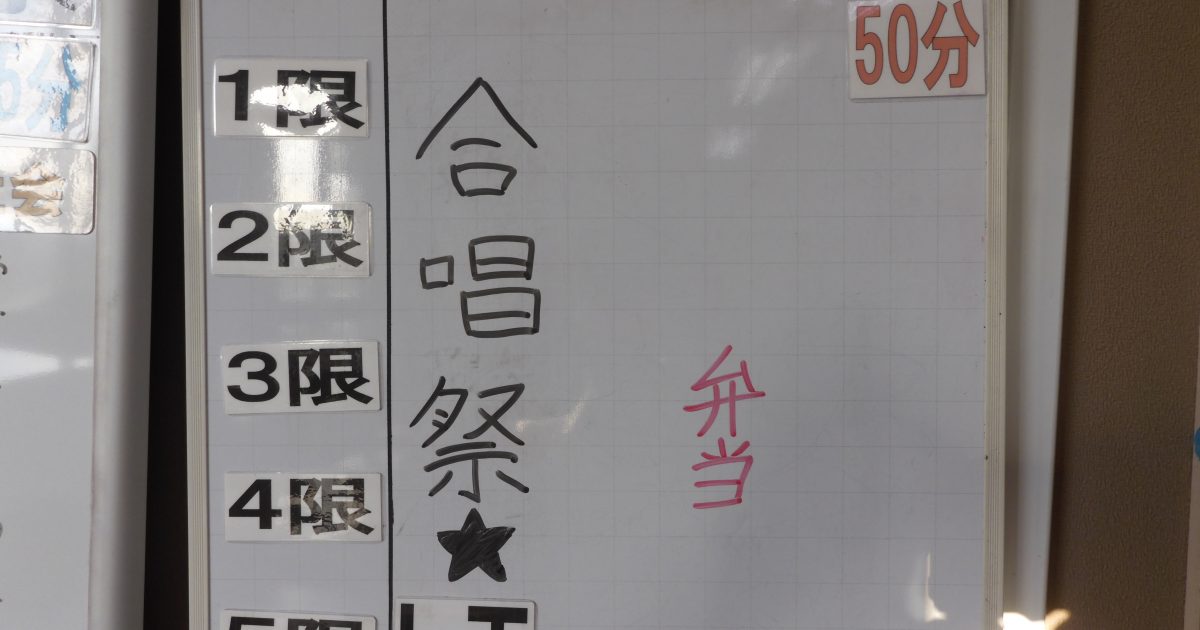 50分
1限
2限
3限
4限
5限
合唱祭★
弁当